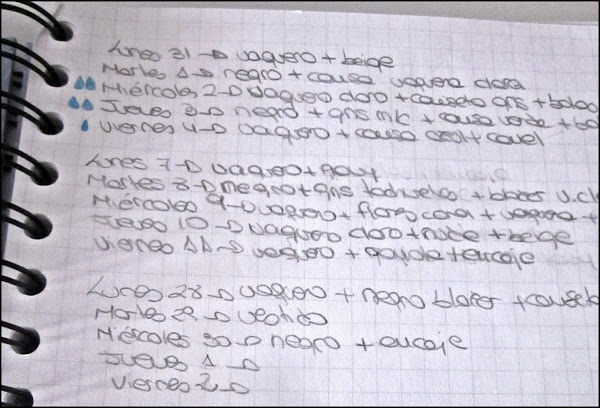 Lunes 31 → vaquero + beige
Martes 1 → negro + camisa vaquera clara
Miércoles 2 → vaquero claro + camiseta gris +
Jueves 3 → negro + gris mk + camisa verde +
Viernes 4 → vaquero + camisa azul + camel
Lunes 7 → vaquero +
Martes 8 → negro + gris + blazer v.cl
Miércoles 9 → vaquero + flores coral + vaquera +
Jueves 10 → vaquero claro + nude + beige
Viernes 11 → vaquero + + encaje
Lunes 28 → vaquero + negro blazer +
Martes 29 → vestido
Miércoles 30 → negro + encaje
Jueves 1 →
Viernes 2 →